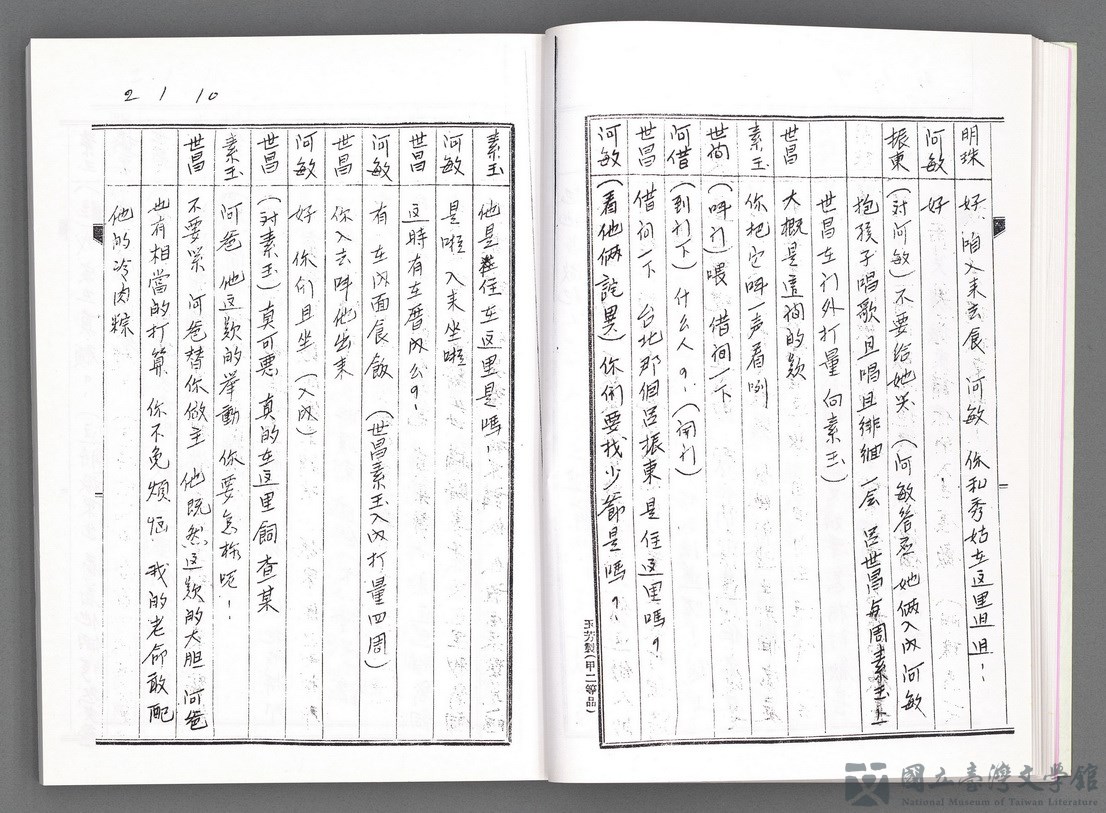 明珠 好 咱入来去食 阿敏 你和秀姑在这里𨑨迌！
阿敏 好
振東 （対阿敏）不要给她哭 （阿敏答丞 她倆入內 阿敏
抱孩子唱歌 且唱且徘徊一会 呂世昌与周素玉上
世昌在门外打量 向素玉）
世昌 大概是這间的款
素玉 你把它呌一声看咧
世昌 （呌门）喂 借问一下
阿敏 （到门下）什么人？！（闲门）
世昌 借问一下 台北那個呂振東 是住這里嗎？
阿敏 （看他倆詫異）你们要找少爺是嗎？！
玉芳製（甲二等品）
2 1 10
素玉 他是住在这里是嗎！
阿敏 是啦 入来坐啦
世昌 这時有在厝內么？！
阿敏 有 在內面食飯 （世昌素玉入內打量四周）
世昌 你入去呌他出来
阿敏 好 你们且坐 （入內）
世昌 （対素玉）真可悪 真的在这里飼查某
素玉 阿爸 他这款的举動 你要怎样呢！
世昌 不要哭 阿爸替你做主 他既然这款的大胆 阿爸
也有相當的打算 你不免煩惱 我的老命敢配
他的冷肉粽
國立臺灣文學館
National Museum of Taiwan Literature